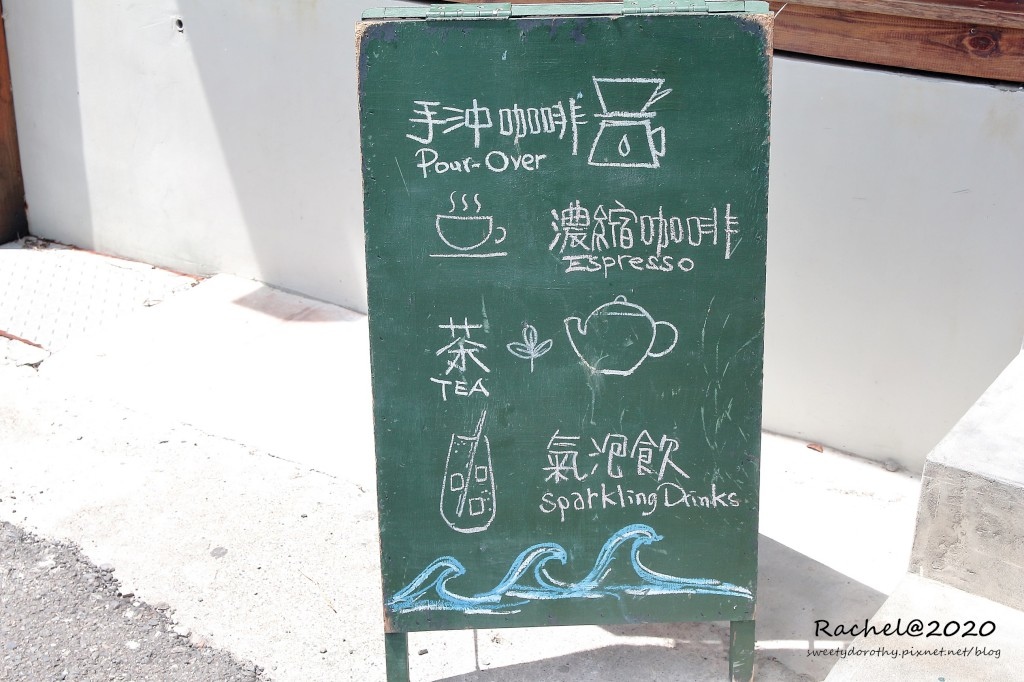 手沖咖啡
Pour-Over
濃縮咖啡
Espresso
茶
TEA
氣泡飲
Sparkling Drinks
Rachel@2020
sweetydorothy.pixnet.net/blog